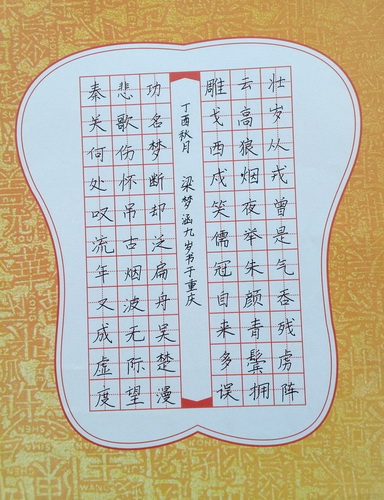 壮岁从戎曾是气吞残虏阵
云高狼烟夜举朱颜青鬓拥
雕戈西戍笑儒冠自来多误
丁酉秋月 梁梦涵九岁书于重庆
功名梦断却泛扁舟吴楚漫
悲歌伤怀吊古烟波无际望
秦关何处叹流年又成虚度